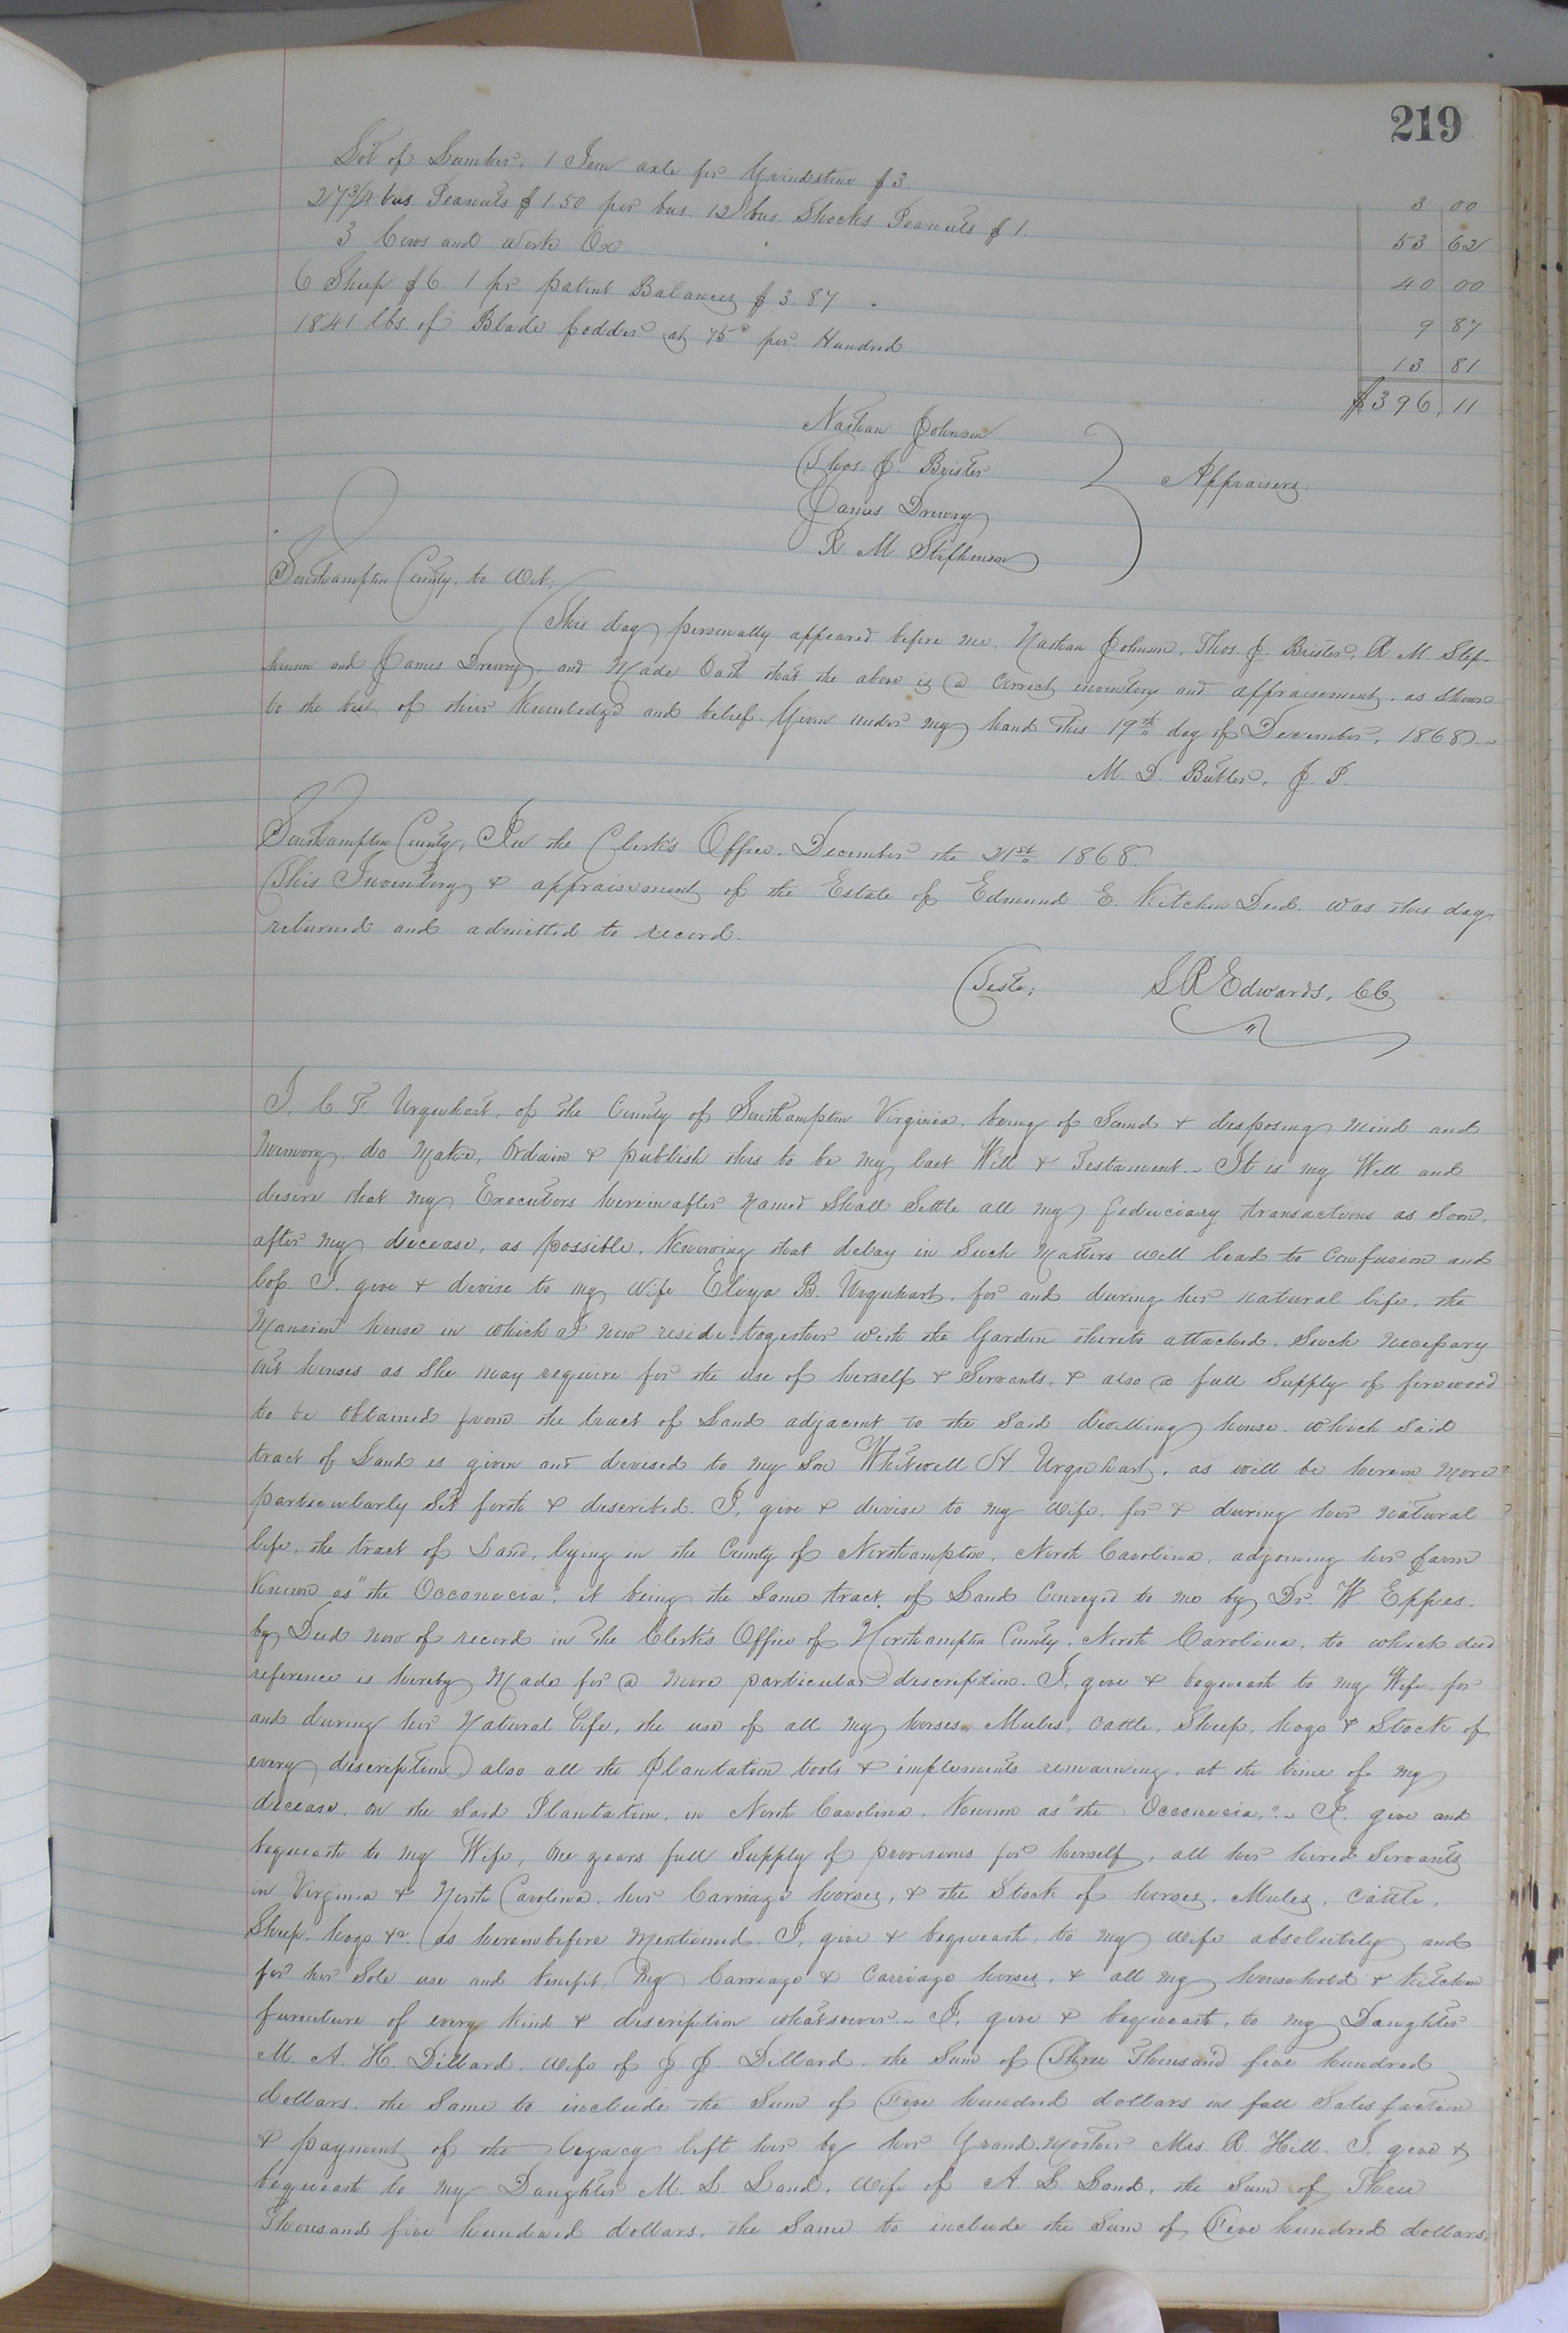 219
Lot of Lumber, 1 Iron axle for Grindstone $3 3 00
27 3/4 bus. Peanuts $1.50 per bus. 12 bus. Shocks Peanuts $1. 53 62
3 Cows and Work Ox 40 00
6 Sheep $6. 1 pr. patent Balances $3.87 9 87
1841 lbs. of Blade fodder at 75c per Hundred 13 81
$396.11
Nathan Johnson
Thos. J. Brister
James Drewry
R. M. Stephenson
Appraisers.
Southampton County, to Wit:
This day personally appeared before me, Nathan Johnson, Thos. J. Brister, R. M. Step-
henson and James Drewry, and Made Oath that the above is a correct inventory and appraisement, as shown
to the best of their Knowledge and belief. Given under my hand this 19th day of December, 1868.
M. D. Butler, J. P.
Southampton County, In the Clerk's Office, December the 21st 1868.
This Inventory & appraisement of the Estate of Edmund E. Kitchen Decd. was this day
returned and admitted to record.
Teste, L R Edwards, CC
I, C. F. Urquhart, of the County of Southampton Virginia, being of Sound & disposing mind and
memory, do Make, Ordain & publish this to be my last Will & Testament - It is my Will and
desire that my Executors hereinafter named Shall Settle all my fiduciary transactions as Soon,
after my decease, as possible, Knowing that delay in Such Matters will lead to Confusion and
loss. I, give & devise to my Wife Eliza B. Urquhart, for and during her natural life, the
Mansion house in which I now reside, together with the Garden thereto attached, Such necessary
out houses as She may require for the use of herself & Servants, & also a full Supply of firewood
to be Obtained from the tract of Land adjacent to the Said dwelling house, which Said
tract of Land is given and devised to my Son Whitwell H. Urquhart, as will be herein More
particularly Set forth & described. I, give & devise to my Wife, for & during her natural
life, the tract of Land, lying in the County of Northampton, North Carolina, adjoining her farm
Known as "the Occonecia", it being the Same tract of Land Conveyed to me by Dr. W. Eppes,
by Deed now of record in the Clerk's Office of Northampton County, North Carolina, to which deed
reference is hereby Made for a More particular description. I, give & bequeath to my Wife, for
and during her Natural life, the use of all my horses, Mules, cattle, Sheep, hogs & Stock of
every description, also all the Plantation tools & implements remaining, at the time of my
decease, on the Said Plantation, in North Carolina, Known as "the Occonecia," - I, give and
bequeath to my Wife, One years full Supply of provisions for herself, all her hired Servants
in Virginia & North Carolina, her Carriage horses, & the Stock of horses, Mules, Cattle,
Sheep, hogs &c. as hereinbefore Mentioned. I, give & bequeath, to my Wife absolutely and
for her Sole use and benefit My Carriage & Carriage horses, & all my household & kitchen
furniture of every Kind & discription whatsoever - I, give & bequeath, to my Daughter
M. A. H. Dillard, Wife of J. J. Dillard, the Sum of Three Thousand five hundred
dollars, the Same to include the Sum of Five hundred dollars in full Satisfaction
& payment of the legacy left her by her Grand-Mother Mrs. R. Hill. I, give &
bequeath to my Daughter M. L. Land, Wife of A. L. Land, the Sum of Three
Thousand five hundred dollars, the Same to include the Sum of Five hundred dollars,